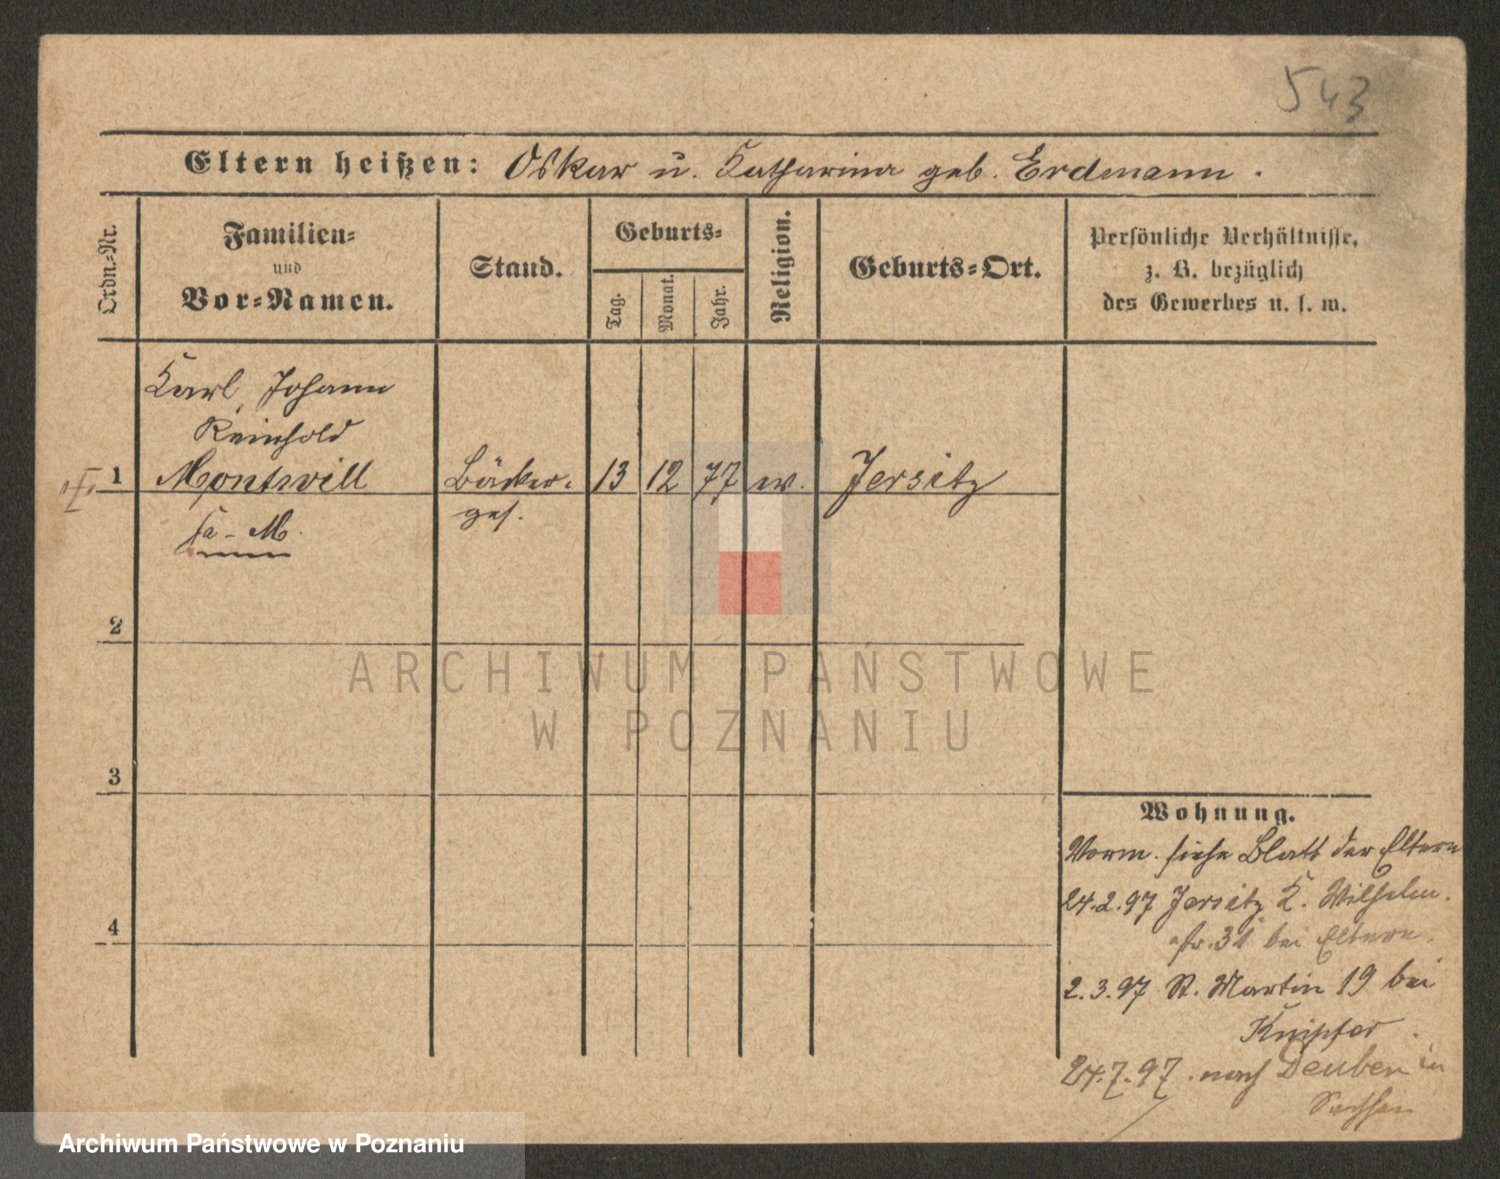 543
Eltern heißen: Oskar u. Katharina geb. Erdmann.
Ordn.-Nr.
Familien-
und
Vor-Namen.
Stand.
Geburts-
Tag.
Monat.
Jahr.
Religion.
Geburts-Ort.
Persönliche Verhältnisse,
z. B. bezüglich
des Gewerbes u. s. w.
Karl, Johann
Reinhold
1 Montwill Bäcker- 13 12 77 ev. Jersitz
ges.
M.
2
3
4
Wohnung.
Vorm. siehe Blatt der Eltern
24.2.97 Jersitz K. Wilhelm-
str. 31 bei Eltern.
2.3.97 St. Martin 19 bei
Knipfer.
24.7.97. nach Deuben in
Sachsen
ARCHIWUM PAŃSTWOWE
W POZNANIU
Archiwum Państwowe w Poznaniu